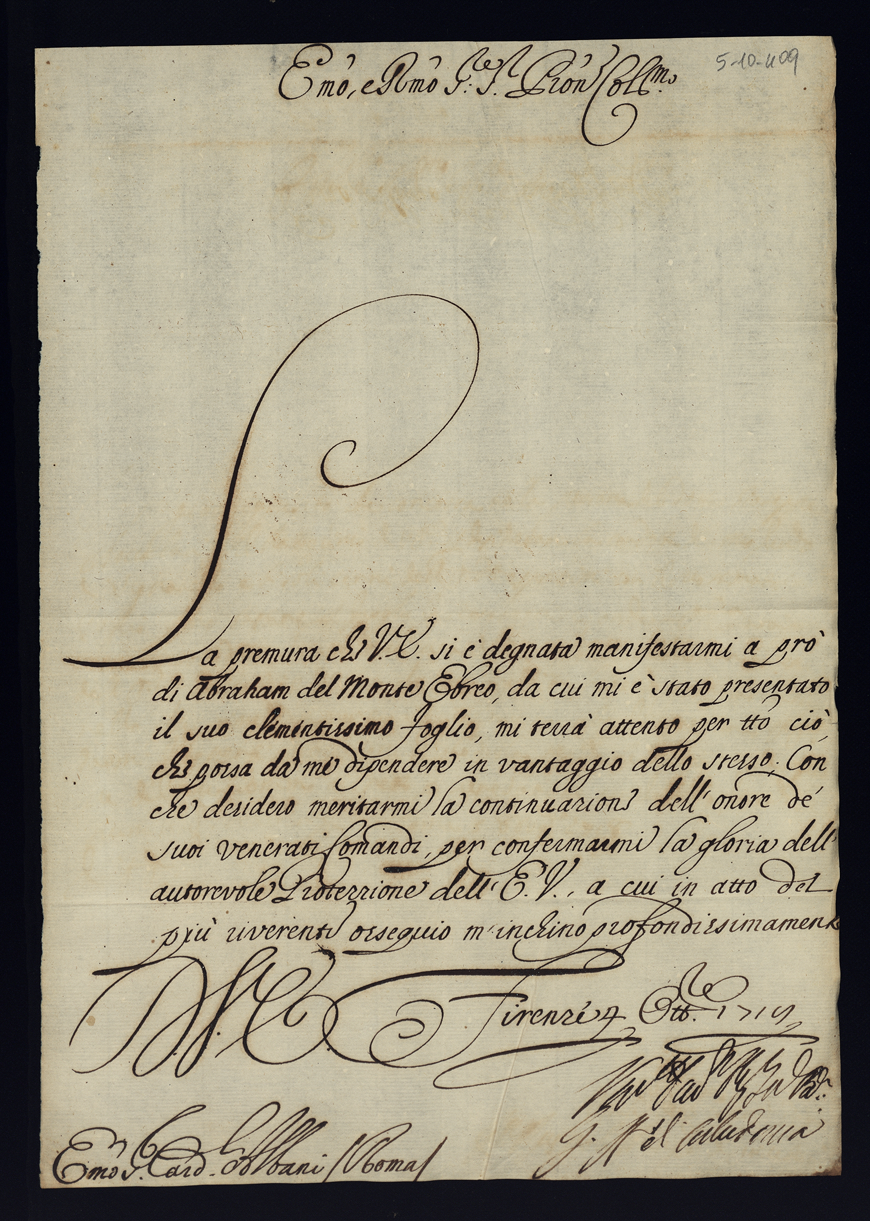 5-10-409
Emo, e Rmo S:re S.r Pron Collmo
La premura che V.E. si è degnata manifestarmi a prò
di Abraham del Monte Ebreo, da cui mi è stato presentato
il suo clementissimo foglio, mi terrà attento per tto ciò,
che possa da me dipendere in vantaggio dello stesso. Con
che desidero meritarmi la continuazione dell' onore de'
suoi venerati Comandi, per confermarmi la gloria dell'
autorevole Protezzione dell' E.V., a cui in atto del
più riverente ossequio m'inchino profondissimamente
D. V. E. Firenze 4 Ott.re 1719
Emo S. Card. Albani / Roma /